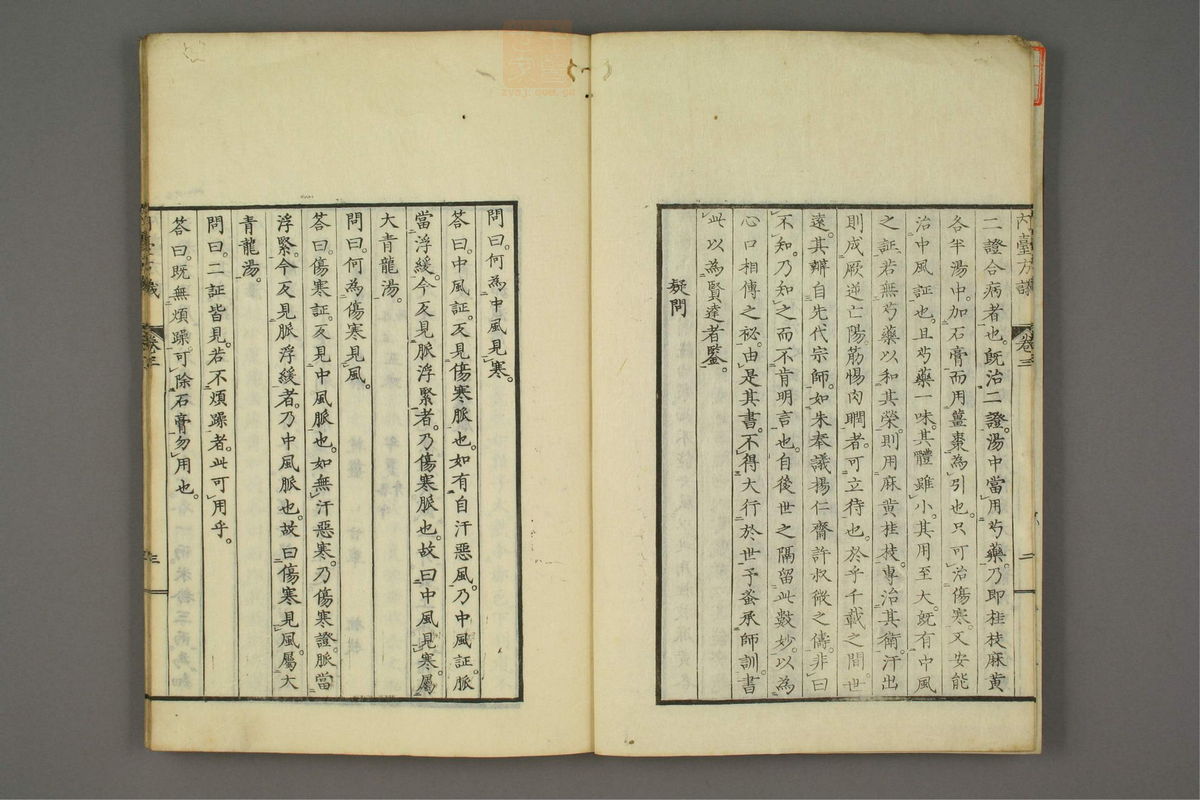 二證合病者也。既治二證。湯中當用芍藥。乃即桂枝麻黃
各半湯中。加石膏而用薑棗為引也。只可治傷寒。又安能
治中風証也。且芍藥一味。其體雖小。其用至大。既有中風
之証。若無芍藥以和其榮。則用麻黃桂枝。專治其衛。汗出
則成厥逆亡陽。筋惕肉瞤者。可立待也。於乎千載之間。世
遠。其辨自先代宗師。如朱奉議揚仁齋許叔微之儔。非曰
不知。乃知之而不肯明言也。自後世之隔留此數妙。以為
心口相傳之祕。由是其書。不得大行於世。予蚤承師訓。書
此以為賢達者鑒。
疑問
卷三
二
問曰。何為中風見寒。
答曰。中風証。反見傷寒脈也。如有自汗惡風。乃中風証。脈
當浮緩。今反見脈浮緊者。乃傷寒脈也。故曰中風見寒。屬
大青龍湯。
問曰。何為傷寒見風。
答曰。傷寒証。反見中風脈也。如無汗惡寒。乃傷寒證。脈當
浮緊。今反見脈浮緩者。乃中風脈也。故曰傷寒見風。屬大
青龍湯。
問曰。二証皆見。若不煩躁者。此可用乎。
答曰。既無煩躁。可除石膏勿用也。
三